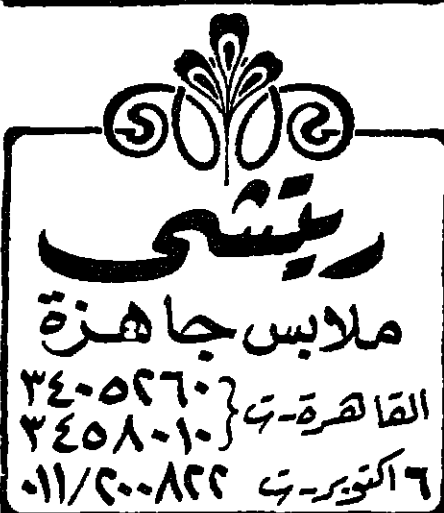 ريتشى
ملابس جاهزة
القاهرة - ت { ٣٤٠٥٢٦٠
٣٤٥٨٠١٠
٦ اكتوبر - ت ٠١١/٢٠٠٨٢٢